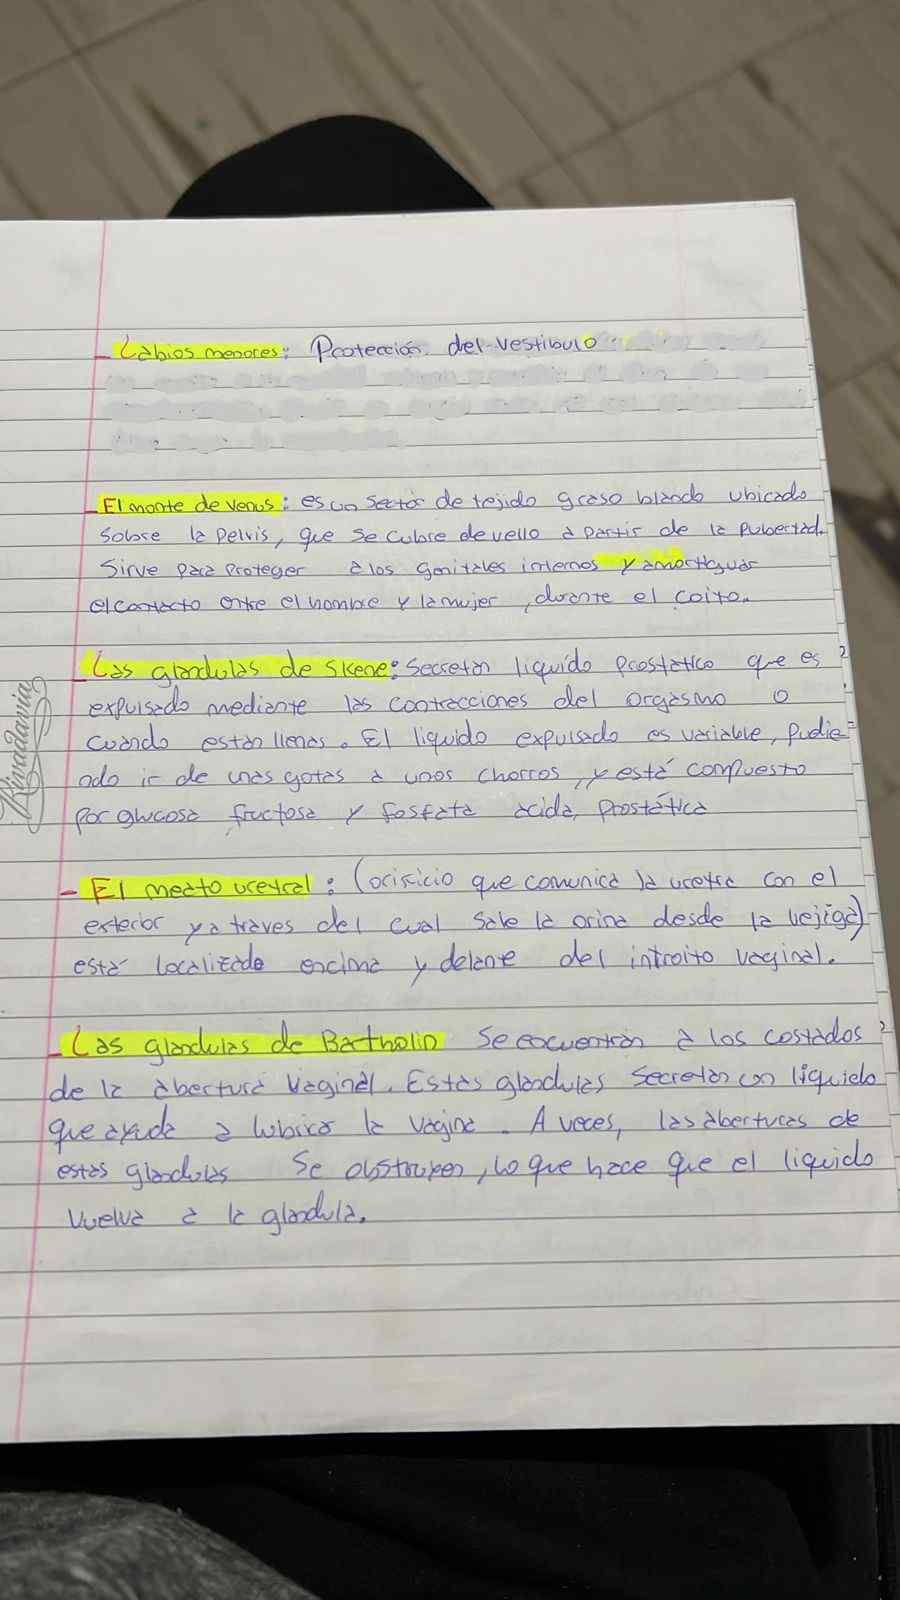 - Labios menores: Protección del vestibulo
- El monte de venus: es un sector de tejido graso blando ubicado
sobre la pelvis, que se cubre de vello a partir de la pubertad.
Sirve para proteger a los genitales internos y amortiguar
el contacto entre el hombre y la mujer, durante el coito.
- Las glandulas de Skene: Secretan liquido prostático que es
expulsado mediante las contracciones del orgasmo o
cuando estan llenas. El liquido expulsado es variable, pudie=
ndo ir de unas gotas a unos chorros, y está compuesto
por glucosa, fructosa y fosfata acida prostática
- El meato uretral: (orificio que comunica la uretra con el
exterior y a traves del cual sale la orina desde la vejiga)
está localizado encima y delante del introito vaginal.
- Las glandulas de Bartholin se encuentran a los costados
de la abertura vaginal. Estas glandulas secretan con liquido
que ayuda a lubicar la vagina. A veces, las aberturas de
estas glandulas se obstruyen, lo que hace que el liquido
vuelva a la glandula.
Rivadavia